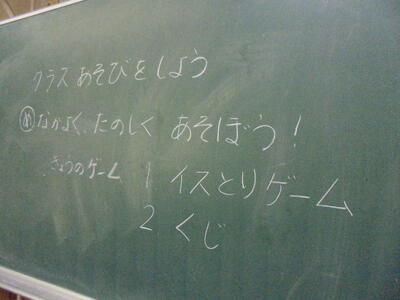 クラスあそびをしよう
㋱なかよく、たのしく あそぼう!
きょうのゲーム 1 イスとりゲーム
2 くじ